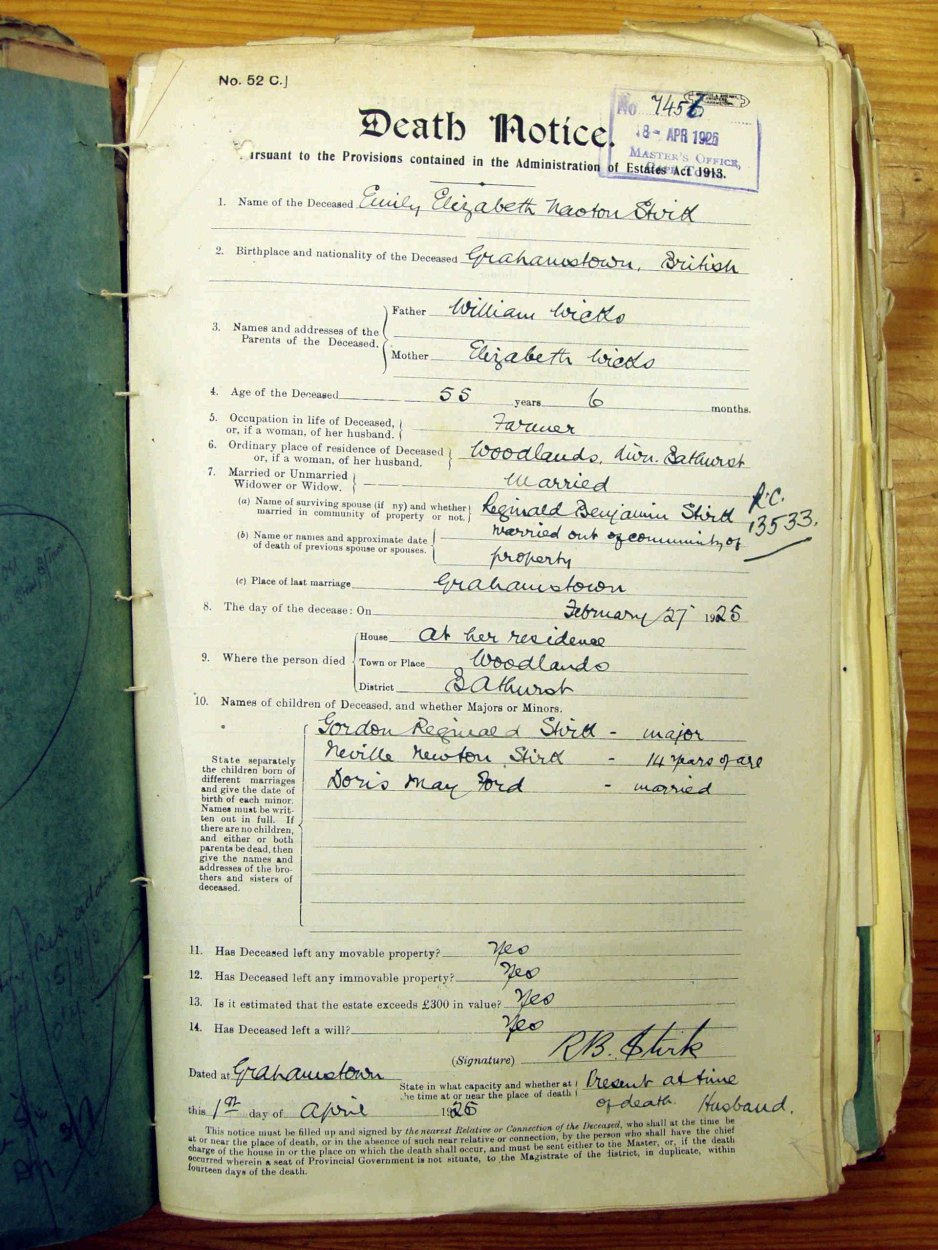 No. 52 C.]
No 7456
18 - APR 1925
MASTER'S OFFICE,
Death Notice.
ursuant to the Provisions contained in the Administration of Estates Act 1913.
1. Name of the Deceased Emily Elizabeth Naoton Stirk
2. Birthplace and nationality of the Deceased Grahamstown, British
3. Names and addresses of the Parents of the Deceased,
Father William Wicks
Mother Elizabeth Wicks
4. Age of the Deceased 55 years 6 months.
5. Occupation in life of Deceased, or, if a woman, of her husband. Farmer
6. Ordinary place of residence of Deceased or, if a woman, of her husband. Woodlands, Divn. Bathurst
7. Married or Unmarried Widower or Widow. Married
(a) Name of surviving spouse (if ny) and whether married in community of property or not. Reginald Benjamin Stirk
R.C. 13533.
married out of community of
(b) Name or names and approximate date of death of previous spouse or spouses.
property
(c) Place of last marriage Grahamstown
8. The day of the decease: On February 27 1925
9. Where the person died
House At her residence
Town or Place Woodlands
District Bathurst
10. Names of children of Deceased, and whether Majors or Minors.
Gordon Reginald Stirk - major
Neville Newton Stirk - 14 years of age
Doris May Ford - married
State separately
the children born of
different marriages
and give the date of
birth of each minor.
Names must be writ-
ten out in full. If
there are no children,
and either or both
parents be dead, then
give the names and
addresses of the bro-
thers and sisters of
deceased.
11. Has Deceased left any movable property? Yes
12. Has Deceased left any immovable property? Yes
13. Is it estimated that the estate exceeds £300 in value? Yes
14. Has Deceased left a will? Yes
(Signature) R.B. Stirk
Dated at Grahamstown
State in what capacity and whether at the time at or near the place of death
Present at time
of death Husband.
this 1st day of April 1925
This notice must be filled up and signed by the nearest Relative or Connection of the Deceased, who shall at the time be
at or near the place of death, or in the absence of such near relative or connection, by the person who shall have the chief
charge of the house in or the place on which the death shall occur, and must be sent either to the Master, or, if the death
occurred wherein a seat of Provincial Government is not situate, to the Magistrate of the district, in duplicate, within
fourteen days of the death.